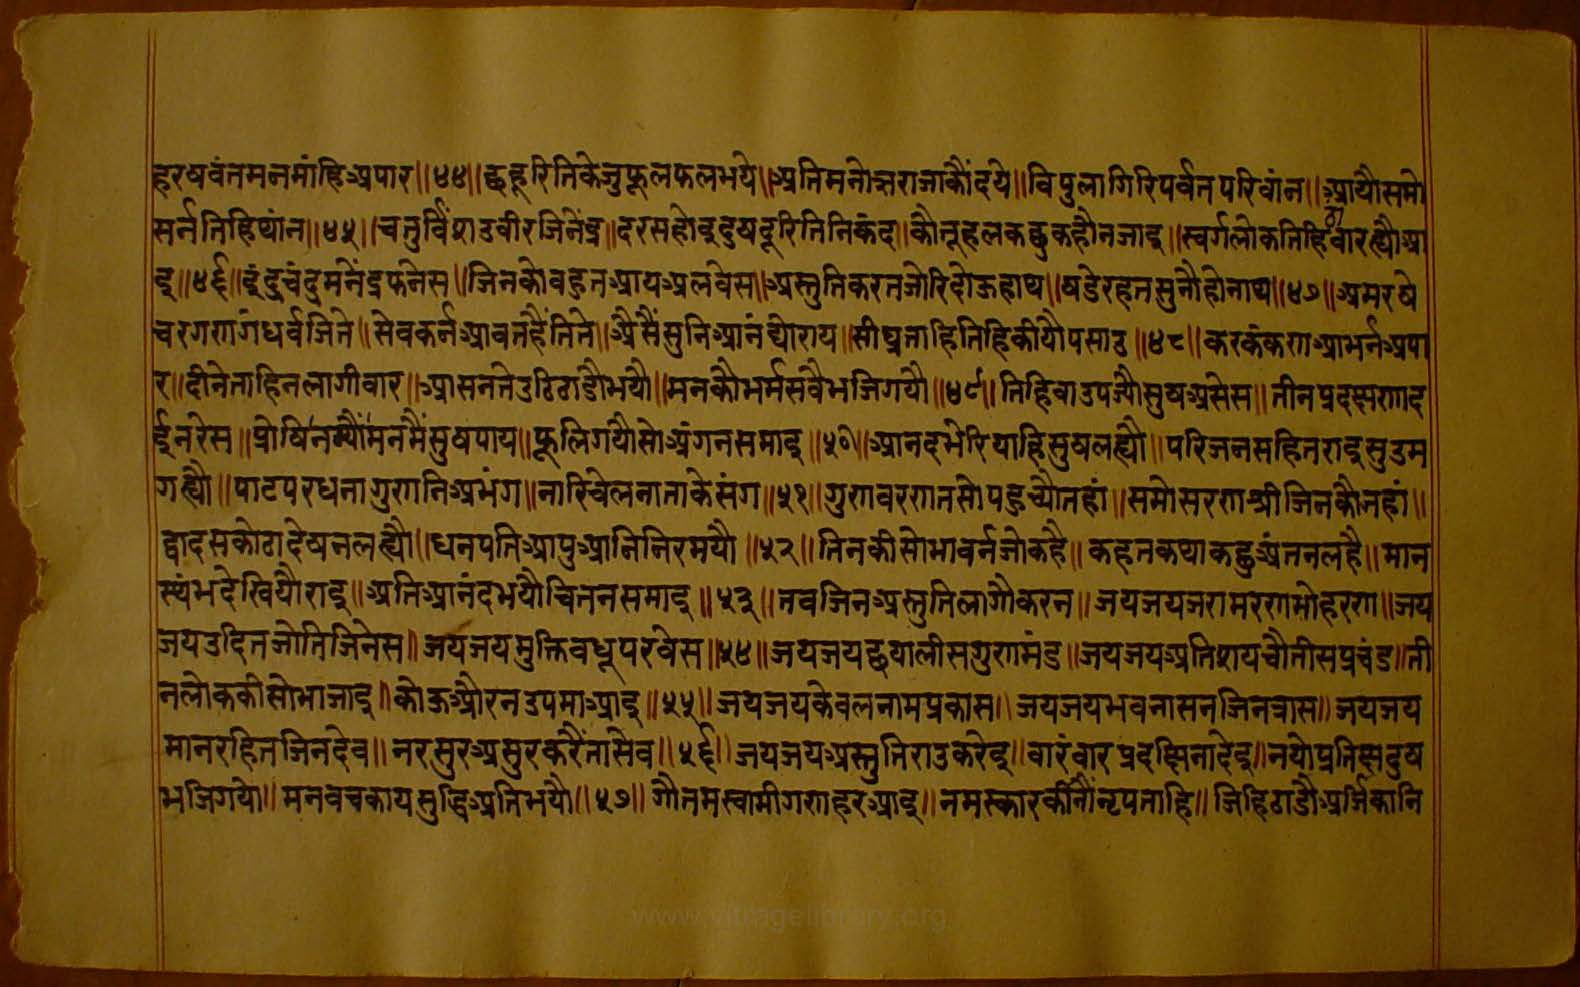 हरषवंतमनमांहिअपार॥४४॥छहूरितिकेजुफूलफलभये॥अतिमनोज्ञराजाकौंदये॥विपुलागिरिपर्वतपरिवांन॥आयौसमो
सर्नतिहिथांन॥४५॥चतुर्विंशउवीरजिनेंद्र॥दरसहोइदुषदूरितिनिकंद॥कौतूहलकछुकहौनजाइ॥स्वर्गलोकतिहिठांवारह्यौआ
इ॥४६॥इंदुचंदुमनेंद्रफनेस॥जिनकोबहुतआयअलवेस॥अस्तुतिकरतजोरिदोऊहाथ॥षडेरहतसुनौहोनाथ॥४७॥अमरषे
चरगणगंधर्वजिते॥सेवकर्नआवतहैंतिते॥अैसैंसुनिआनंद्योराय॥सीघ्रताहितिहिकीयौपसाउ॥४८॥करकंकणआभर्नअपा
र॥दीनेताहिनलागीवार॥आसनतेउठिठाडौभयौ॥मनकौभर्मसवैभजिगयौ॥४९॥तिहिवाउपज्यौसुषअसेस॥तीनप्रदक्षणाद
ईनरेस॥प्रोषिनम्यौंमनमैंसुषपाय॥फूलिगयौसोअंगनसमाइ॥५०॥आनदभेरियाहिसुषलह्यौ॥परिजनसहितराइसुउम
गह्यौ॥पाटपरधनागुणनिअभंग॥नारिचेलनाताकेसंग॥५१॥गुणवरगानसोपहुच्यौतहां॥समोसरणश्रीजिनकौजहां॥
द्वादसकोठादेषतलह्यौ॥धनपतिआपुआनिनिरमयौ॥५२॥तिनकीसोभावर्नजोकहै॥कहतकथाकछुअंतनलहै॥मान
स्थंभदेखियौराइ॥अतिआनंदभयौचितनसमाइ॥५३॥तवजिनअस्तुतिलागौकरन॥जयजयजरामरणमोहरण॥जय
जयउदितजोतिजिनेस॥जयजयमुक्तिवधूपरवेस॥५४॥जयजयछयालीसगुणमंड॥जयजयअतिशयचौतीसप्रचंड॥ती
नलोककीसोभाजाइ॥कोऊऔरनउपमाआइ॥५५॥जयजयकेवलनामप्रकास॥जयजयभवनासनजिनत्रास॥जयजय
मानरहितजिनदेव॥नरसुरअसुरकरैंतासेव॥५६॥जयजयअस्तुतिराउकरेइ॥वारंवारप्रदक्षिनादेइ॥नयोप्रतिक्षदुष
भजिगयो॥मनवचकायसुद्धिअतिभयौ॥५७॥गौतमस्वामीगणहरआइ॥नमस्कारकीनौंनृपताहि॥जिहिठाडौअर्जिकाति